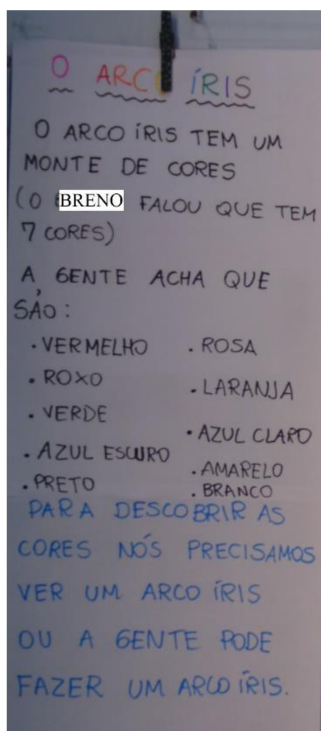 O ARCO ÍRIS
O ARCO ÍRIS TEM UM
MONTE DE CORES
(O BRENO FALOU QUE TEM
7 CORES)
A GENTE ACHA QUE
SÃO:
· VERMELHO · ROSA
· ROXO · LARANJA
· VERDE · AZUL CLARO
· AZUL ESCURO · AMARELO
· PRETO · BRANCO
PARA DESCOBRIR AS
CORES NÓS PRECISAMOS
VER UM ARCO ÍRIS
OU A GENTE PODE
FAZER UM ARCO ÍRIS.